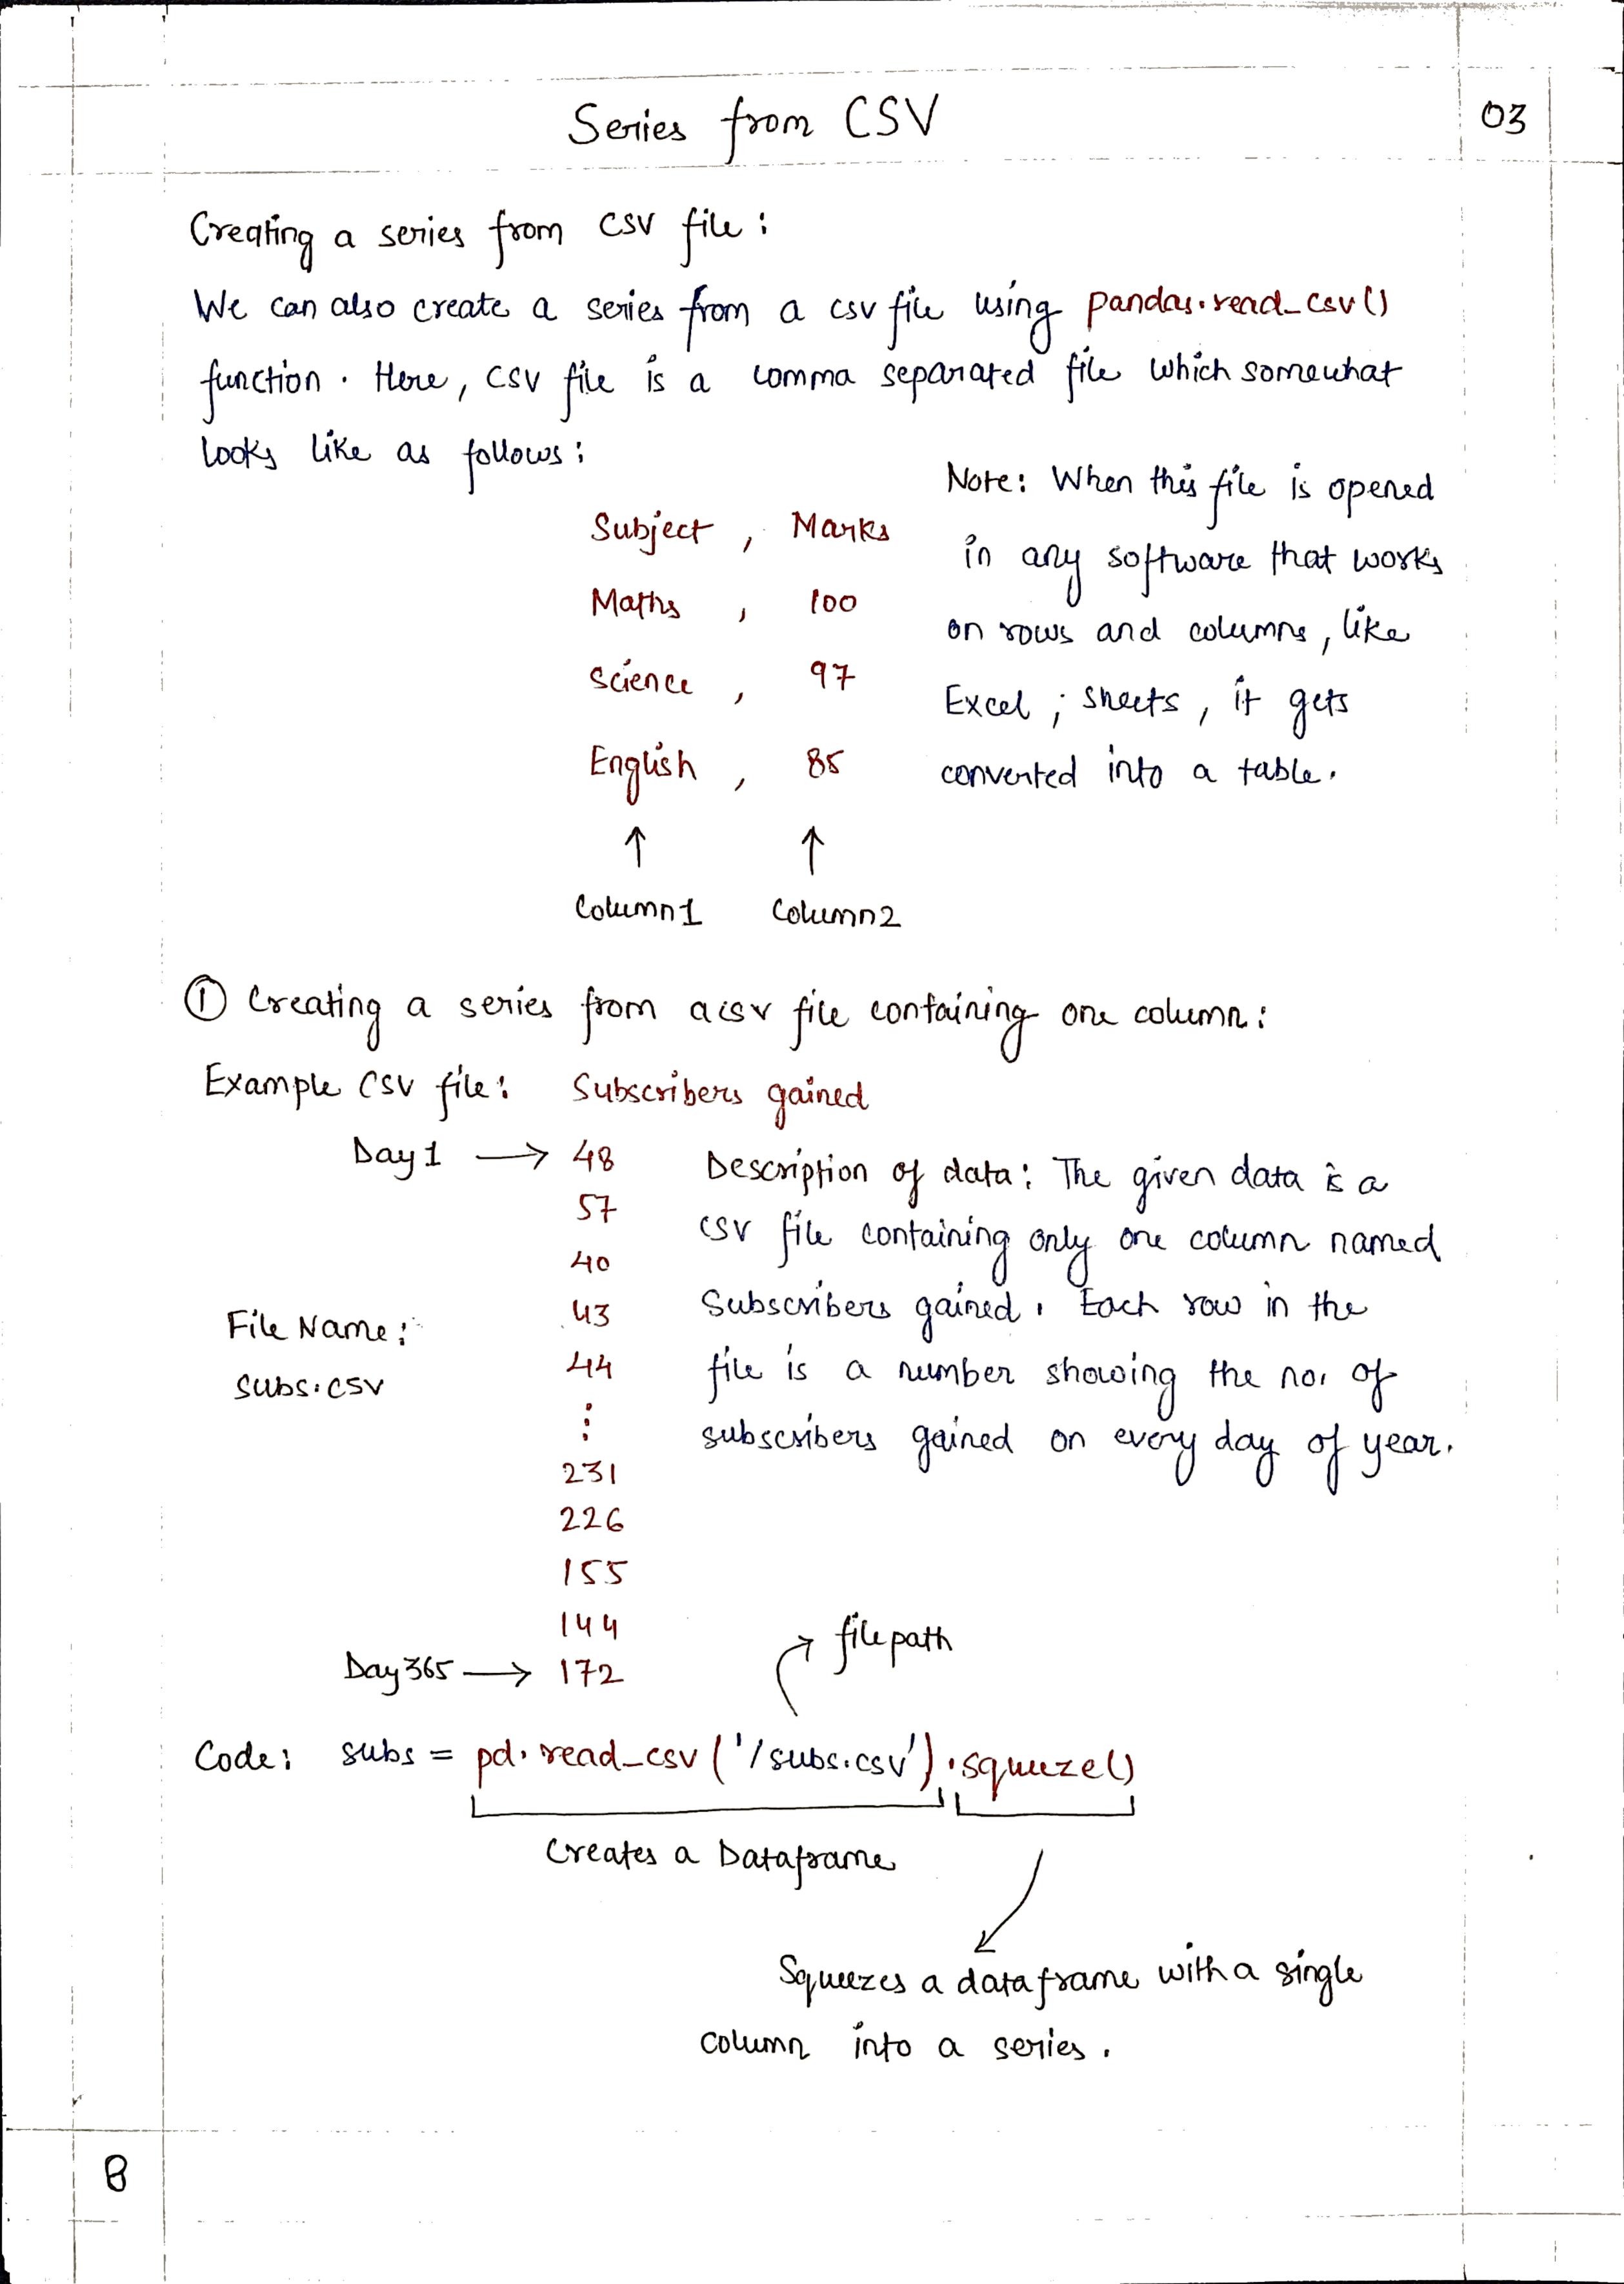 Series from CSV
03
Creating a series from csv file :
We can also create a series from a csv file using pandas.read_csv()
function. Here, csv file is a comma separated file which somewhat
looks like as follows :
Subject , Marks
Maths , 100
Science , 97
English , 85
↑ ↑
Column1 Column2
Note: When this file is opened
in any software that works
on rows and columns, like
Excel ; sheets, it gets
converted into a table.
① Creating a series from a csv file containing one column :
Example CSV file : Subscribers gained
Day 1 → 48
57
40
43
44
⋮
231
226
155
144
Day 365 → 172
File Name :
subs.csv
Description of data : The given data is a
csv file containing only one column named
Subscribers gained. Each row in the
file is a number showing the no. of
subscribers gained on every day of year.
file path
Code : subs = pd.read_csv('/subs.csv').squeeze()
Creates a Dataframe
Squeezes a dataframe with a single
column into a series.
8